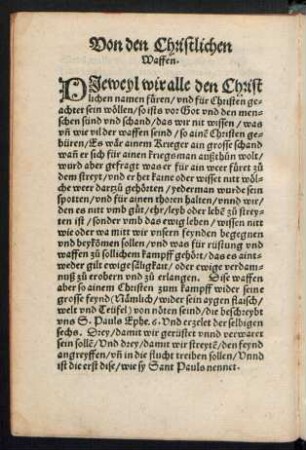 Von den Christlichen
Waffen.
DIeweyl wir alle den Christ
lichen namen füren/ vnd für Christen ge-
achtet sein wöllen/ so ists vor Got vnd den men-
schen sünd vnd schand/ das wir nit wissen/ was
vñ wie vil der waffen seind/ so ainē Christen ge-
büren/ Es wär ainem Krieger ain grosse schand
wañ er sich für ainen Kriegsman außthün wolt/
wurd aber gefragt was er für ain weer füret zu
dem streyt/ vnd er het kaine oder wisset nitt wöl-
che weer darzü gehörten/ yederman wurde sein
spotten/ vnd für ainen thoren halten/ vnnd wir/
den es nitt vmb güt/ ehr/ leyb oder lebē zu strey-
ten ist/ sonder vmb das ewig leben/ wissen nitt
wie oder wa mitt wir vnsern feynden begegnen
vnd beykömen sollen/ vnd was für rüstung vnd
waffen zü sollichem kampff gehört/ das es aint-
weder gilt ewige säligkait/ oder ewige verdam-
nuß zu erobern vnd zü erlangen. Dise waffen
aber so ainem Christen zum kampff wider seine
grosse feynd (Nämlich/ wider sein aygen flaisch/
welt vnd Teüfel) von nöten seind/ die beschreybt
vns S. Pauls Ephe. 6. Vnd erzelet der selbigen
sechs. Drey/ damit wir gerüstet vnnd verwaret
sein sollē/ Vnd drey/ damit wir streytē/ den feynd
angreyffen/ vñ in die flucht treiben sollen/ Vnnd
ist die erst dise/ wie sy Sant Pauls nennet.